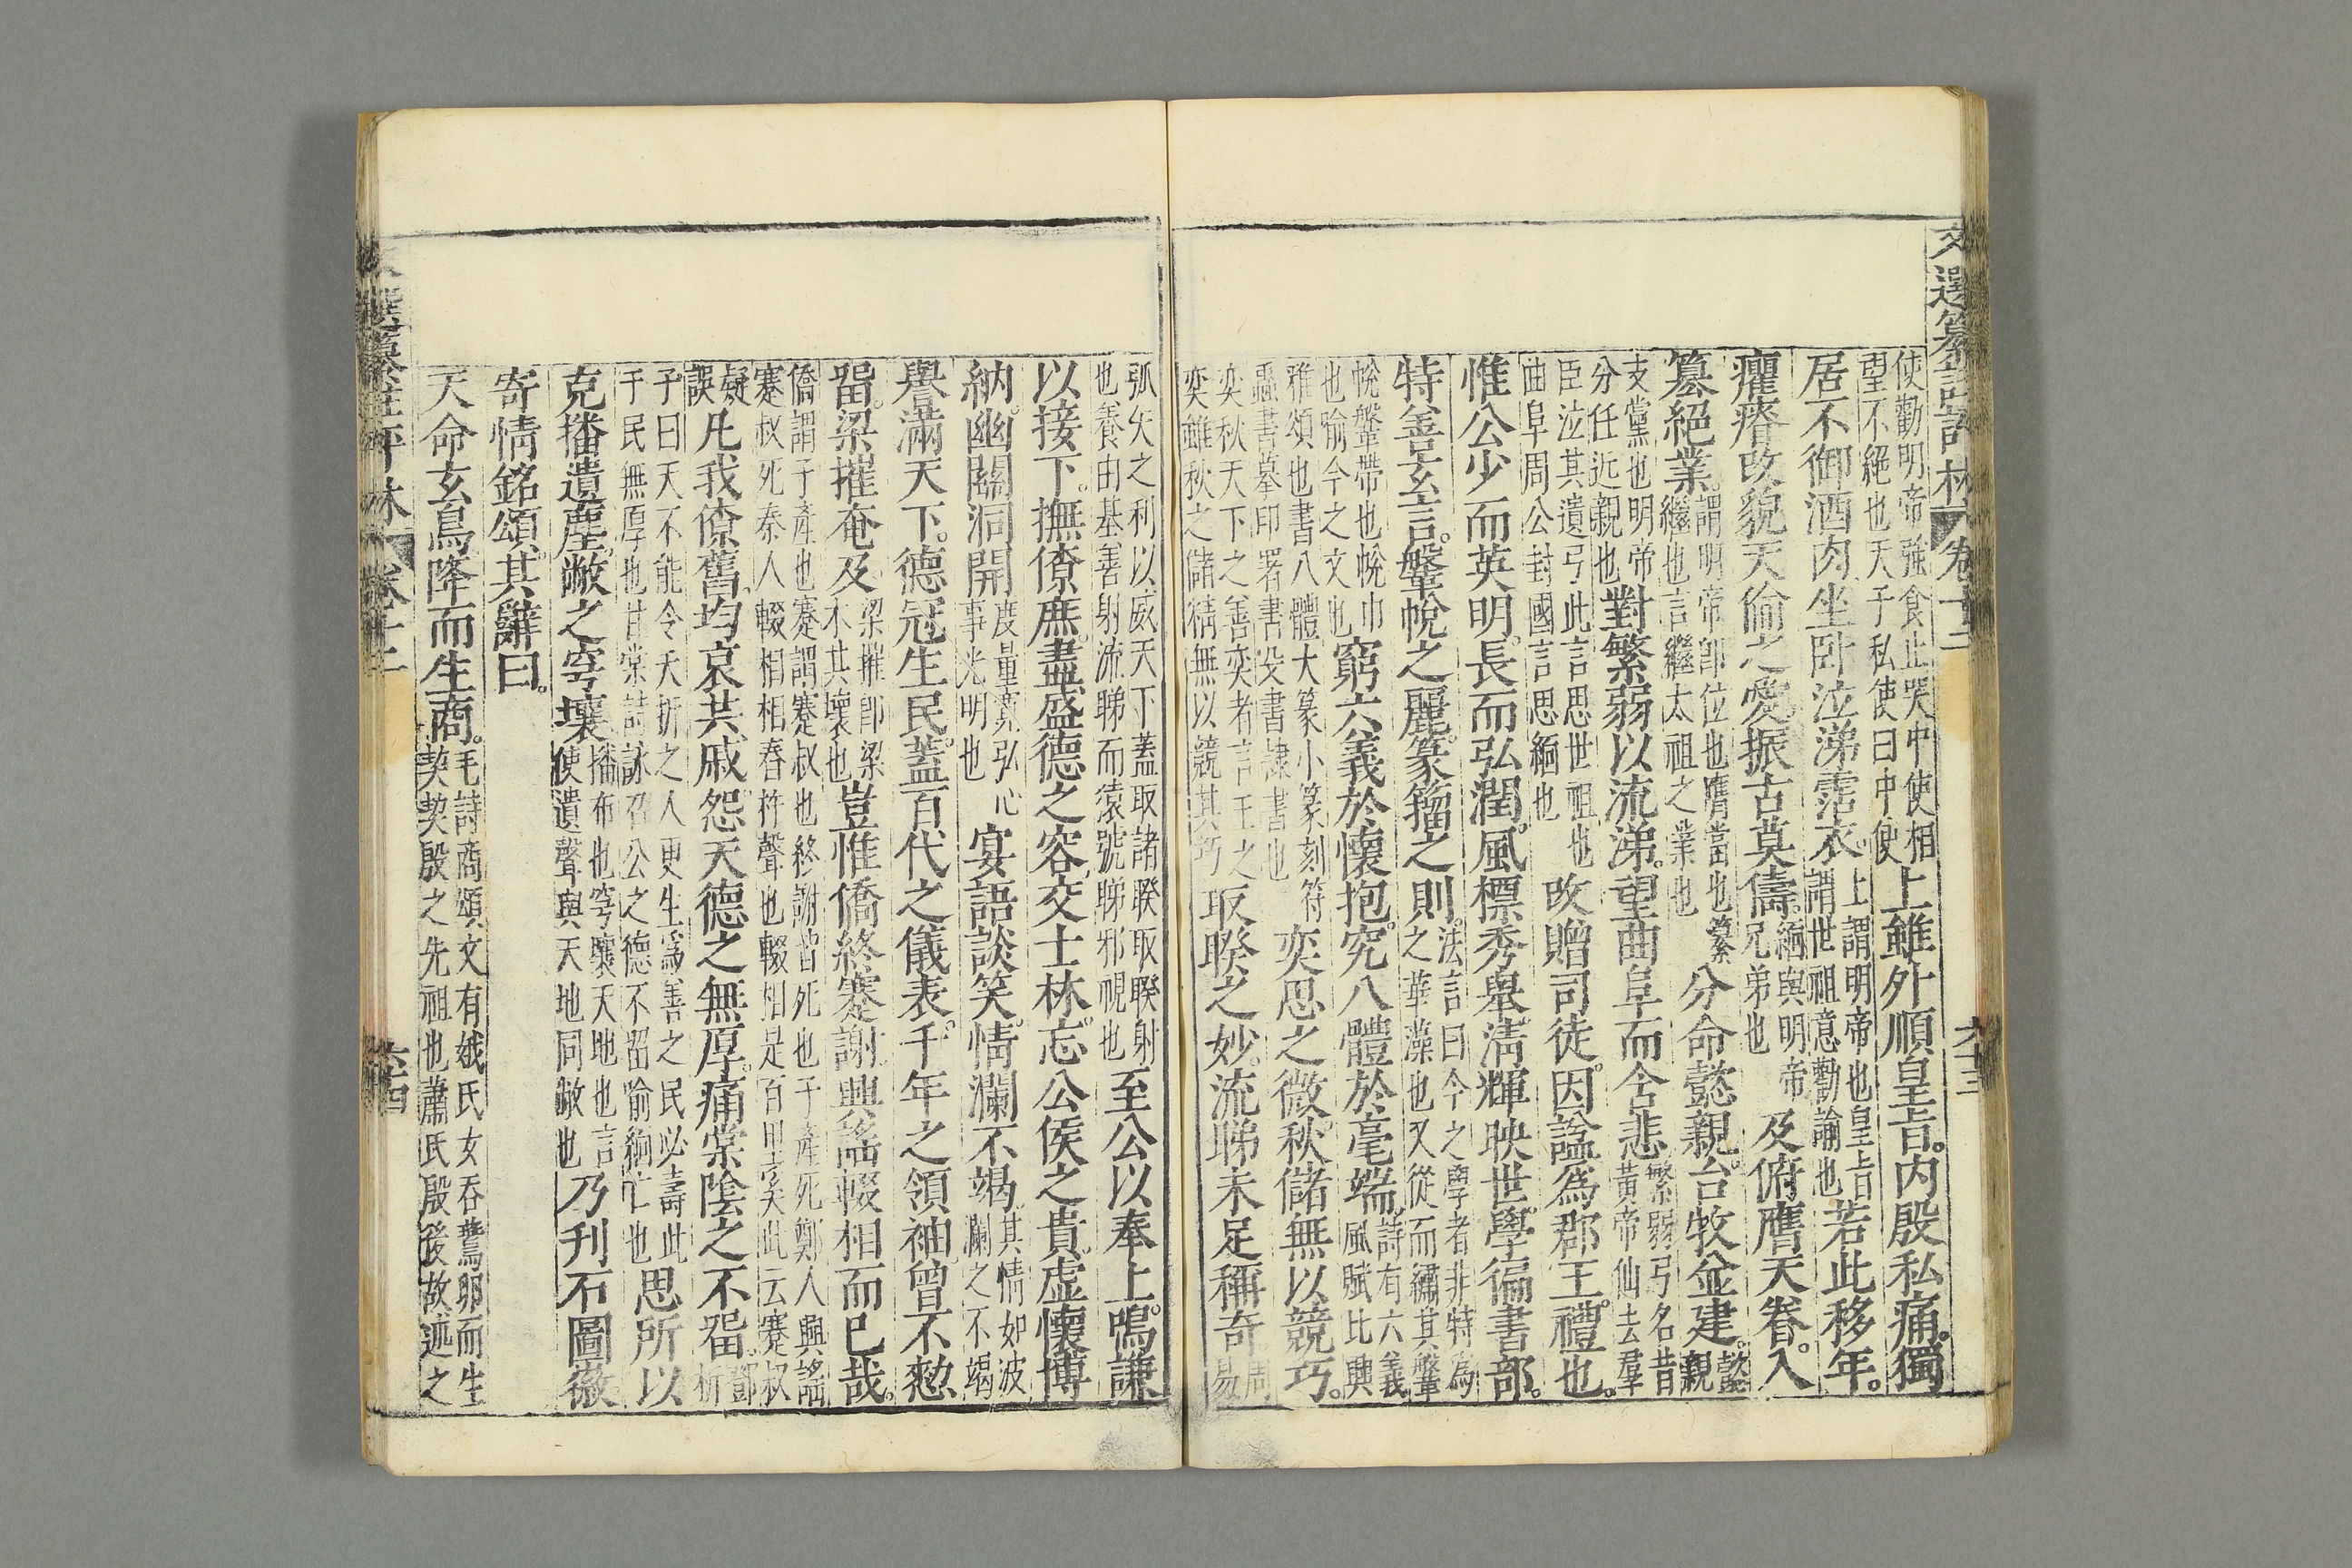 文選纂註評林 卷十二 六十三
使勸明帝強食止哭中使相望不絕也天子私使曰中使上雖外順皇旨。內殷私痛。獨
居不御酒肉坐臥泣涕霑衣。上謂明帝也皇旨謂世祖意勸諭也若此移年。
癯瘠改貌天倫之愛。振古莫儔。緬與明帝兄弟也及俯膺天眷。入
纂絕業。謂明帝卽位也膺當也纂繼也言繼太祖之業也分命懿親。台牧並建。懿親
支黨也明帝分任近親也對繁弱以流涕。望曲阜而含悲繁弱弓名昔黃帝仙去羣
臣泣其遺弓此言思世祖也曲阜周公封國言思緬也改贈司徒。因諡爲郡王。禮也。
惟公少而英明。長而弘潤。風標秀舉。清輝映世。學徧書部。
特善玄言。鞶帨之麗。篆籀之則。法言曰今之學者非特爲之華藻也又從而繡其鞶
帨鞶帶也帨巾也喻今之文也窮六義於懷抱。究八體於毫端。詩有六義風賦比興
雅頌也書八體大篆小篆刻符蟲書摹印署書殳書隸書也奕思之微。秋儲無以競巧。
奕秋天下之善奕者言王之奕雖秋之儲精無以競其巧取睽之妙。流睇未足稱奇。周易
弧矢之利以威天下蓋取諸睽取睽射也養由基善射流睇而猿號睇邪視也至公以奉上。鳴謙
以接下。撫僚庶。盡盛德之容。交士林。忘公侯之貴。虛懷博
納。幽關洞開度量寬弘心事光明也宴語談笑。情瀾不竭。其情如波瀾之不竭
譽滿天下。德冠生民。蓋百代之儀表。千年之領袖。曾不憗
留。梁摧奄及。梁摧卽梁木其壞也豈惟僑終蹇謝。興謠輟相而已哉。
僑謂子產也蹇謂蹇叔也終謝皆死也子產死鄭人興謠蹇叔死秦人輟相相舂杵聲也輟相是百里奚此云蹇叔
疑誤凡我僚舊。均哀共戚怨天德之無厚。痛棠陰之不留。鄧析
子曰天不能令夭折之人更生爲善之民必壽此于民無厚也甘棠詩詠召公之德不留喻緬亡也思所以
克播遺塵。敝之穹壤播布也穹壤天地也言使遺聲與天地同敝也乃刊石圖徽
寄情銘頌。其辭曰。
天命玄鳥降而生商。毛詩商頌文有娀氏女吞鷰卵而生契契殷之先祖也蕭氏殷後故述之
文選纂註評林 卷十二 六十四